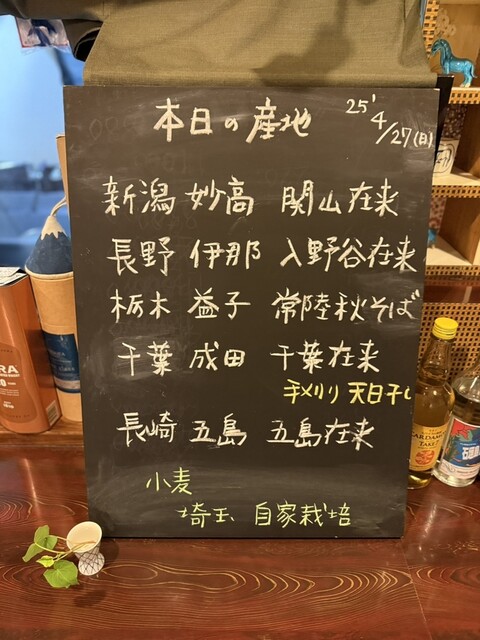 本日の産地
25' 4/27(日)
新潟 妙高 関山在来
長野 伊那 入野谷在来
栃木 益子 常陸秋そば
千葉 成田 千葉在来
手メリリ 天日干し
長崎 五島 五島在来
小麦
埼玉 自家栽培